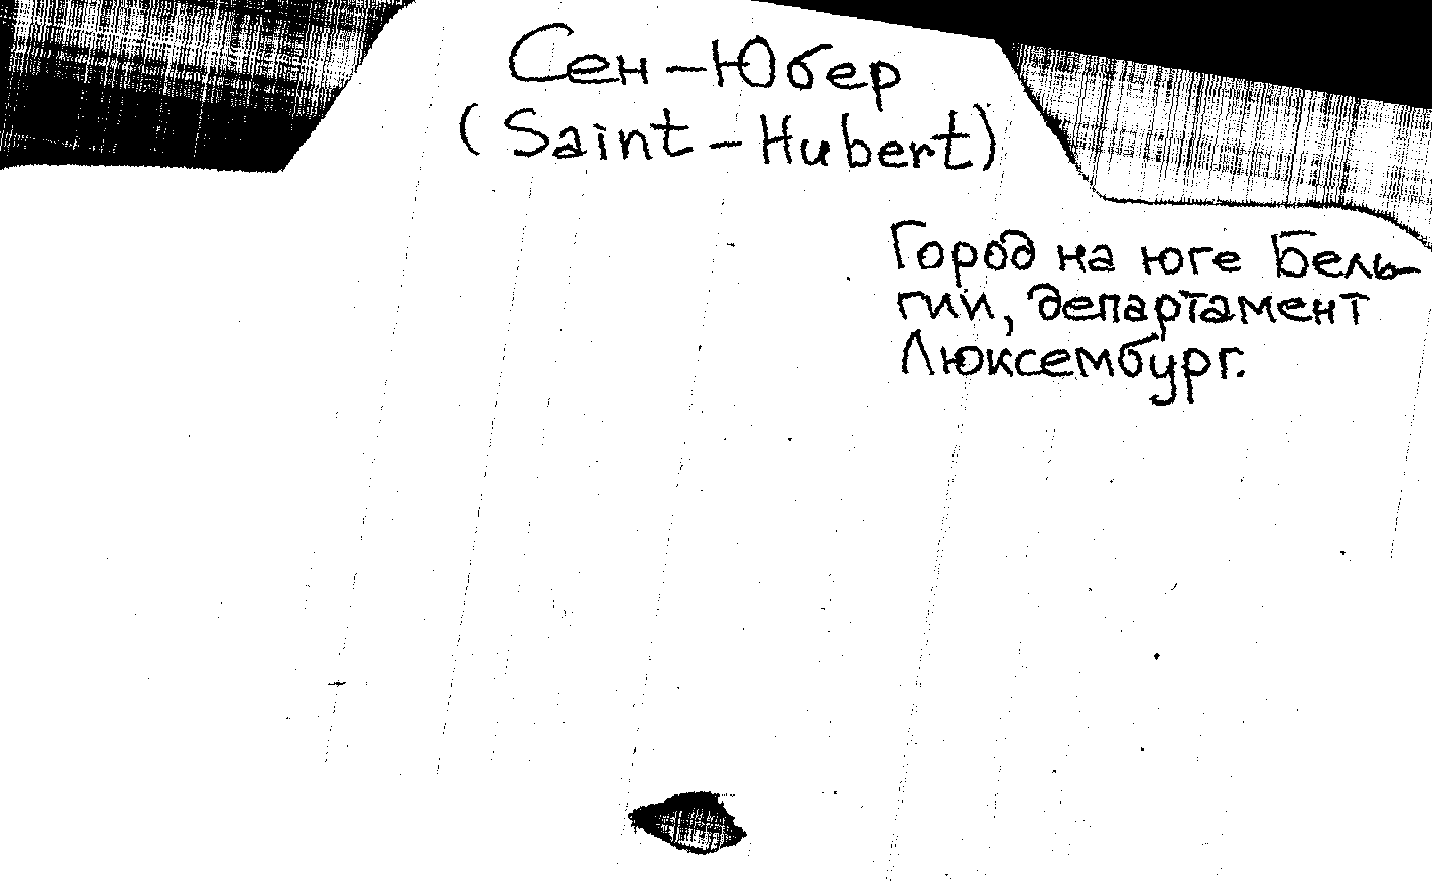 Сен-Юбер
(Saint-Hubert)
Город на юге Бель-
гии, департамент
Люксембург.